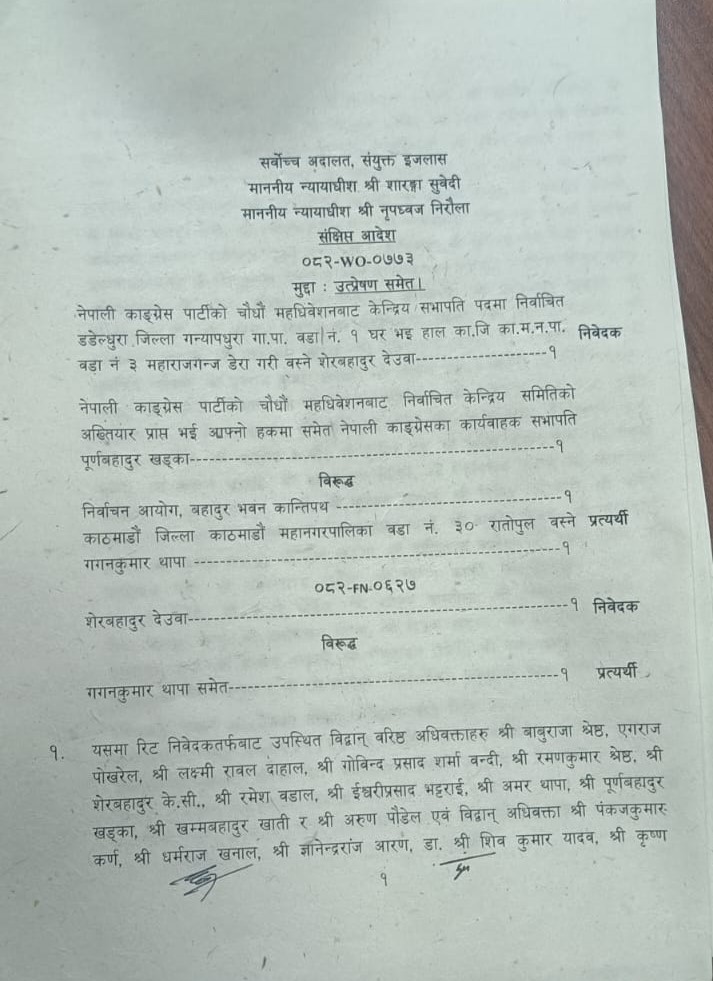 सर्वोच्च अदालत, संयुक्त इजलास
माननीय न्यायाधीश श्री शारङ्गा सुवेदी
माननीय न्यायाधीश श्री नृपध्वज निरौला
संक्षिप्त आदेश
०८२-WO-०७७३
मुद्दा : उत्प्रेषण समेत।
नेपाली काङ्ग्रेस पार्टीको चौधौं महधिवेशनबाट केन्द्रिय सभापति पदमा निर्वाचित
डडेल्धुरा जिल्ला गन्यापधुरा गा.पा. वडा नं. १ घर भइ हाल का.जि का.म.न.पा. निवेदक
वडा नं ३ महाराजगन्ज डेरा गरी वस्ने शेरबहादुर देउवा---------------------१
नेपाली काङ्ग्रेस पार्टीको चौधौं महधिवेशनबाट निर्वाचित केन्द्रिय समितिको
अख्तियार प्राप्त भई आफ्नो हकमा समेत नेपाली काङ्ग्रेसका कार्यवाहक सभापति
पूर्णबहादुर खड्का------------------------------------------------------------१
विरूद्ध
निर्वाचन आयोग, बहादुर भवन कान्तिपथ -------------------------------------१
काठमाडौं जिल्ला काठमाडौं महानगरपालिका वडा नं. ३० रातोपुल वस्ने प्रत्यर्थी
गगनकुमार थापा ------------------------------------------------------------१
०८२-FN-०६२७
शेरबहादुर देउवा--------------------------------------------------------------१ निवेदक
विरूद्ध
गगनकुमार थापा समेत------------------------------------------------------१ प्रत्यर्थी
१. यसमा रिट निवेदकतर्फबाट उपस्थित विद्वान् वरिष्ठ अधिवक्ताहरु श्री बाबुराजा श्रेष्ठ, एगराज
पोखरेल, श्री लक्ष्मी रावल दाहाल, श्री गोविन्द प्रसाद शर्मा वन्दी, श्री रमणकुमार श्रेष्ठ, श्री
शेरबहादुर के.सी., श्री रमेश वडाल, श्री ईश्वरीप्रसाद भट्टराई, श्री अमर थापा, श्री पूर्णबहादुर
खड्का, श्री खम्मबहादुर खाती र श्री अरुण पौडेल एवं विद्वान् अधिवक्ता श्री पंकजकुमार
कर्ण, श्री धर्मराज खनाल, श्री ज्ञानेन्द्रराज आरण, डा. श्री शिव कुमार यादव, श्री कृष्ण
१